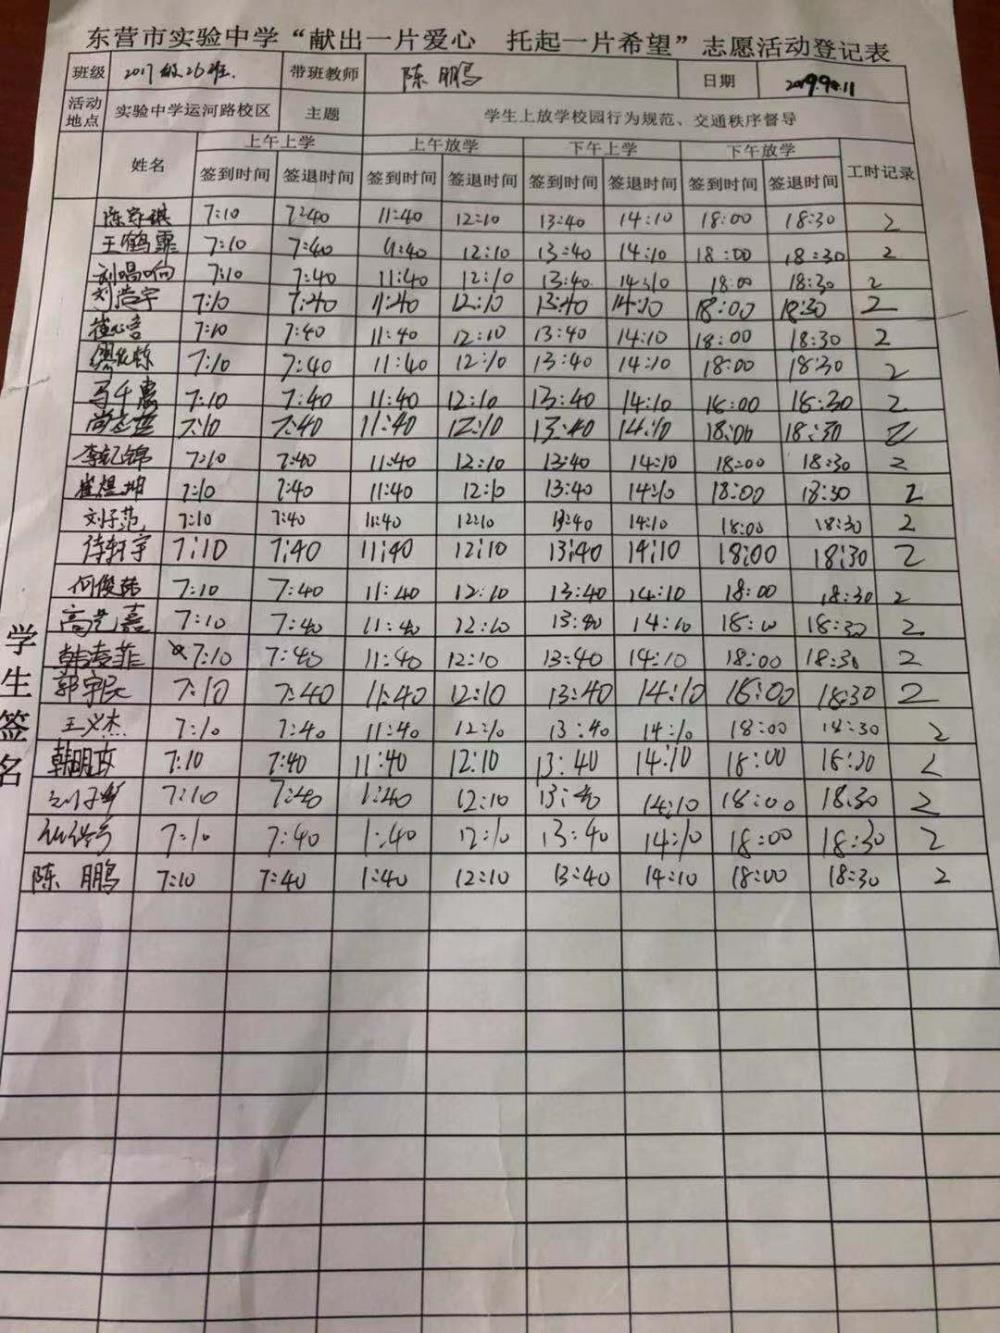 东营市实验中学“献出一片爱心 托起一片希望”志愿活动登记表
班级 2017级26班. 带班教师 陈鹏 日期 2019.9.11
活动地点 实验中学运河路校区 主题 学生上放学校园行为规范、交通秩序督导
姓名 上午上学 上午放学 下午上学 下午放学 工时记录
签到时间 签退时间 签到时间 签退时间 签到时间 签退时间 签到时间 签退时间
学生签名
7:10 7:40 11:40 12:10 13:40 14:10 18:00 18:30 2
王鹤霏 7:10 7:40 11:40 12:10 13:40 14:10 18:00 18:30 2
刘唱响 7:10 7:40 11:40 12:10 13:40 14:10 18:00 18:30 2
刘浩宇 7:10 7:40 11:40 12:10 13:40 14:10 18:00 18:30 2
7:10 7:40 11:40 12:10 13:40 14:10 18:00 18:30 2
7:10 7:40 11:40 12:10 13:40 14:10 18:00 18:30 2
马千惠 7:10 7:40 11:40 12:10 13:40 14:10 18:00 18:30 2
7:10 7:40 11:40 12:10 13:40 14:10 18:00 18:30 2
7:10 7:40 11:40 12:10 13:40 14:10 18:00 18:30 2
崔煜坤 7:10 7:40 11:40 12:10 13:40 14:10 18:00 18:30 2
刘子范 7:10 7:40 11:40 12:10 13:40 14:10 18:00 18:30 2
7:10 7:40 11:40 12:10 13:40 14:10 18:00 18:30 2
何俊韩 7:10 7:40 11:40 12:10 13:40 14:10 18:00 18:30 2
7:10 7:40 11:40 12:10 13:40 14:10 18:00 18:30 2
7:10 7:40 11:40 12:10 13:40 14:10 18:00 18:30 2
郭宇辰 7:10 7:40 11:40 12:10 13:40 14:10 18:00 18:30 2
王义杰 7:10 7:40 11:40 12:10 13:40 14:10 18:00 18:30 2
韩明政 7:10 7:40 11:40 12:10 13:40 14:10 18:00 18:30 2
7:10 7:40 1:40 12:10 13:40 14:10 18:00 18:30 2
7:10 7:40 1:40 12:10 13:40 14:10 18:00 18:30 2
陈鹏 7:10 7:40 1:40 12:10 13:40 14:10 18:00 18:30 2